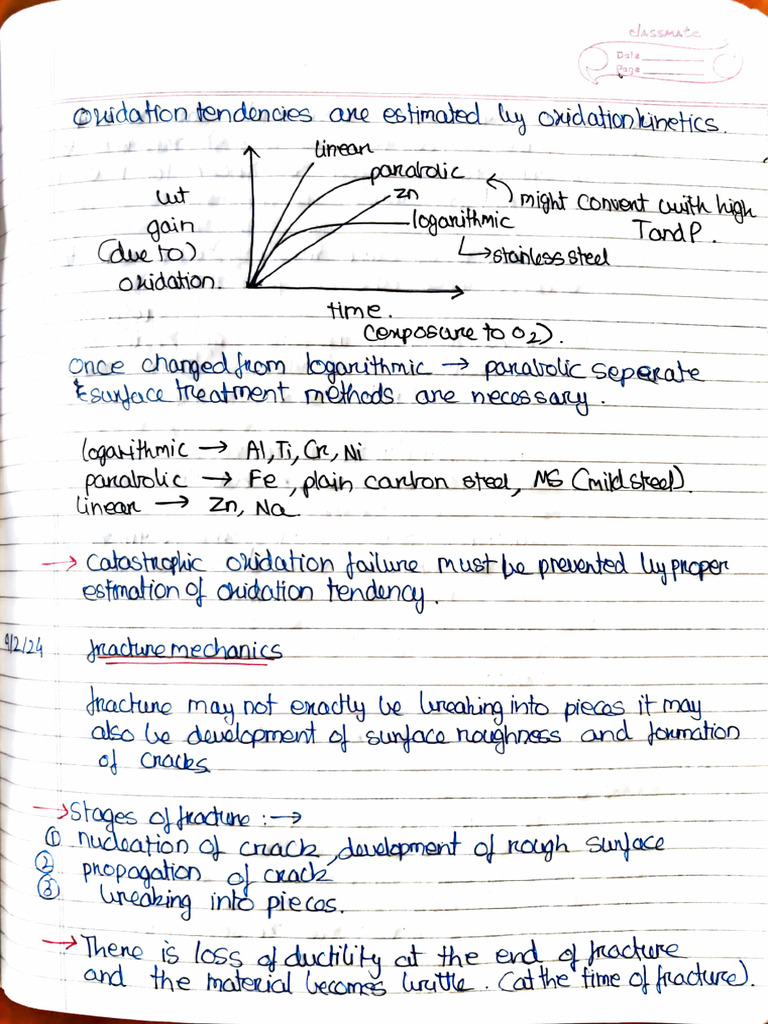 classmate
Date
Page
Oxidation tendencies are estimated by oxidation kinetics.
linear
parabolic
Zn
logarithmic
might convert with high
T and P.
stainless steel
wt
gain
(due to)
oxidation.
time.
(exposure to O2).
Once changed from logarithmic → parabolic seperate
surface treatment methods are necessary.
logarithmic → Al, Ti, Cr, Ni
parabolic → Fe, plain carbon steel, MS (mild steel).
linear → Zn, Na
→ Catastrophic oxidation failure must be prevented by proper
estimation of oxidation tendency.
9/2/24
fracture mechanics
fracture may not exactly be breaking into pieces it may
also be development of surface roughness and formation
of cracks
→ Stages of fracture :→
① nucleation of crack, development of rough surface
② propagation of crack
③ breaking into pieces.
→ There is loss of ductility at the end of fracture
and the material becomes brittle. (at the time of fracture).